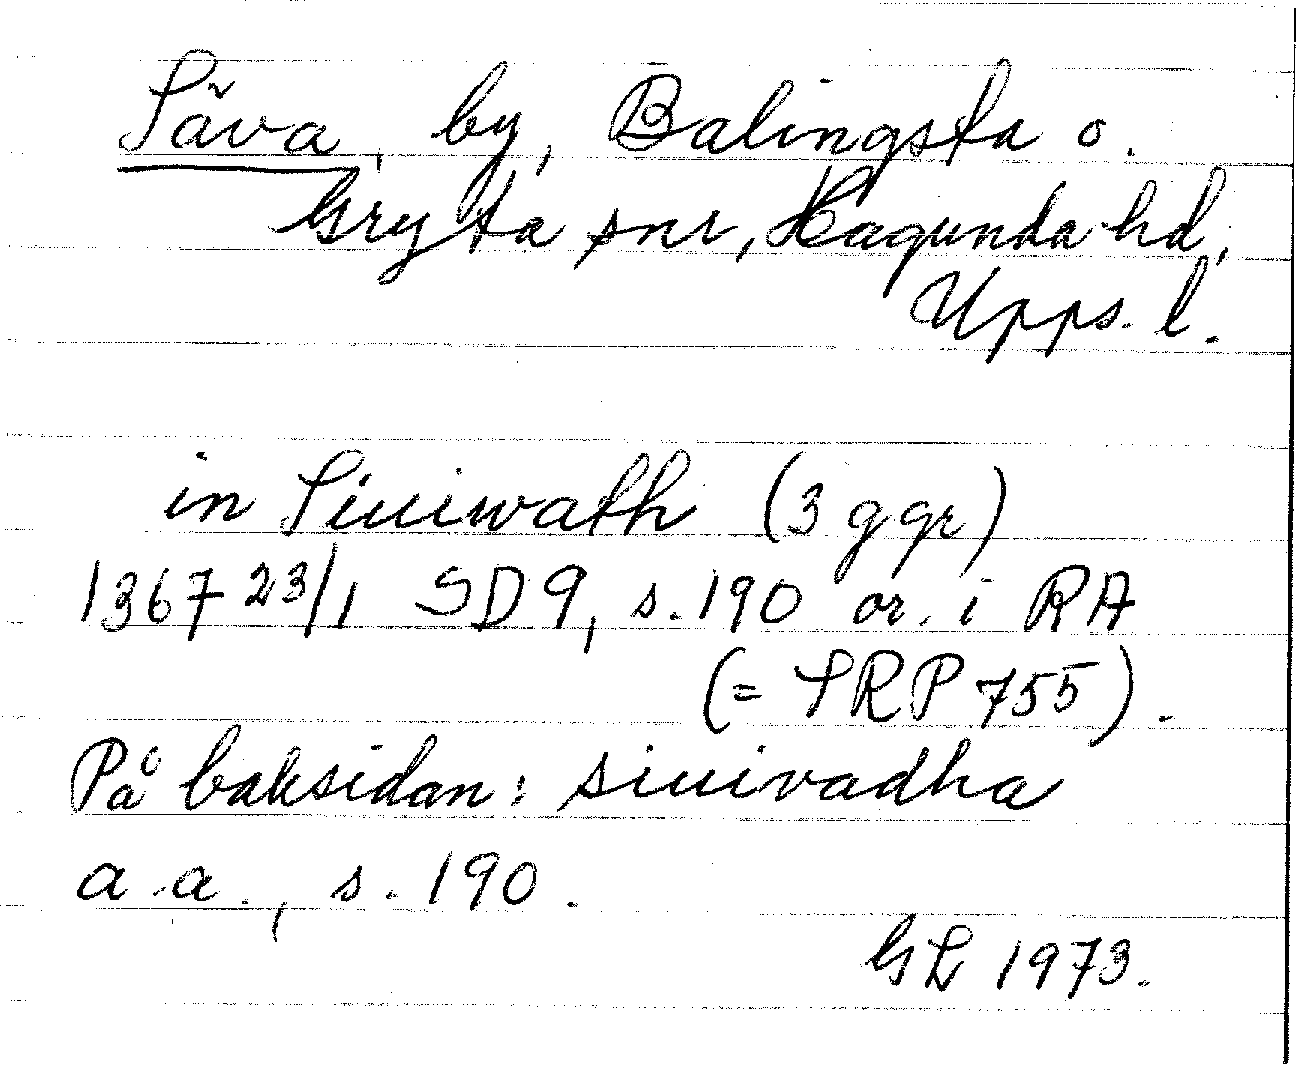 Säva, by, Balingsta o.
Gryta snr, Hagunda hd,
Upps. l.
in Siuiwath (3 ggr)
1367 23/1 SD 9, s. 190 or. i RA
(= SRP 755).
På baksidan: siuivadha
a.a., s. 190.
GL 1973.